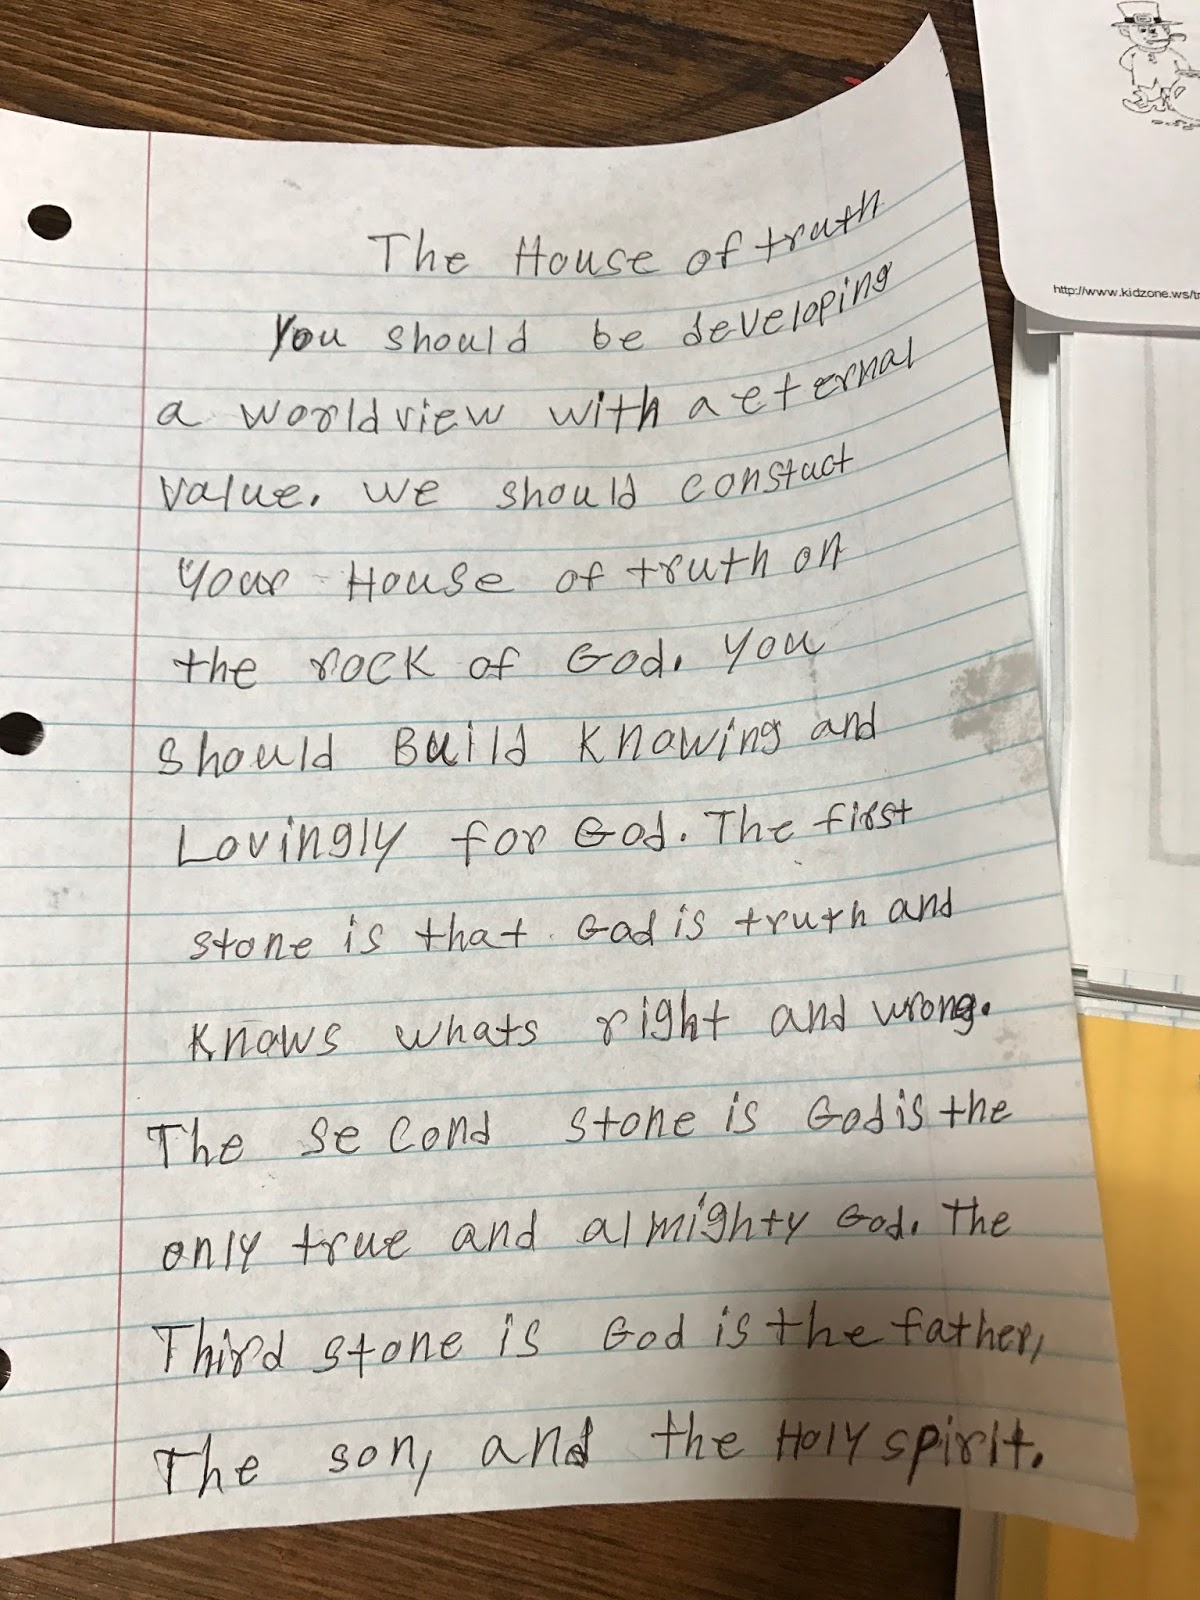 The House of truth
You should be developing
a worldview with a eternal
value. we should constuct
your House of truth on
the rock of God. you
should Build Knowing and
Lovingly for God. The first
stone is that God is truth and
Knows whats right and wrong.
The second stone is God is the
only true and almighty God. The
Third stone is God is the father,
The son, and the Holy spirit.
http://www.kidzone.ws/